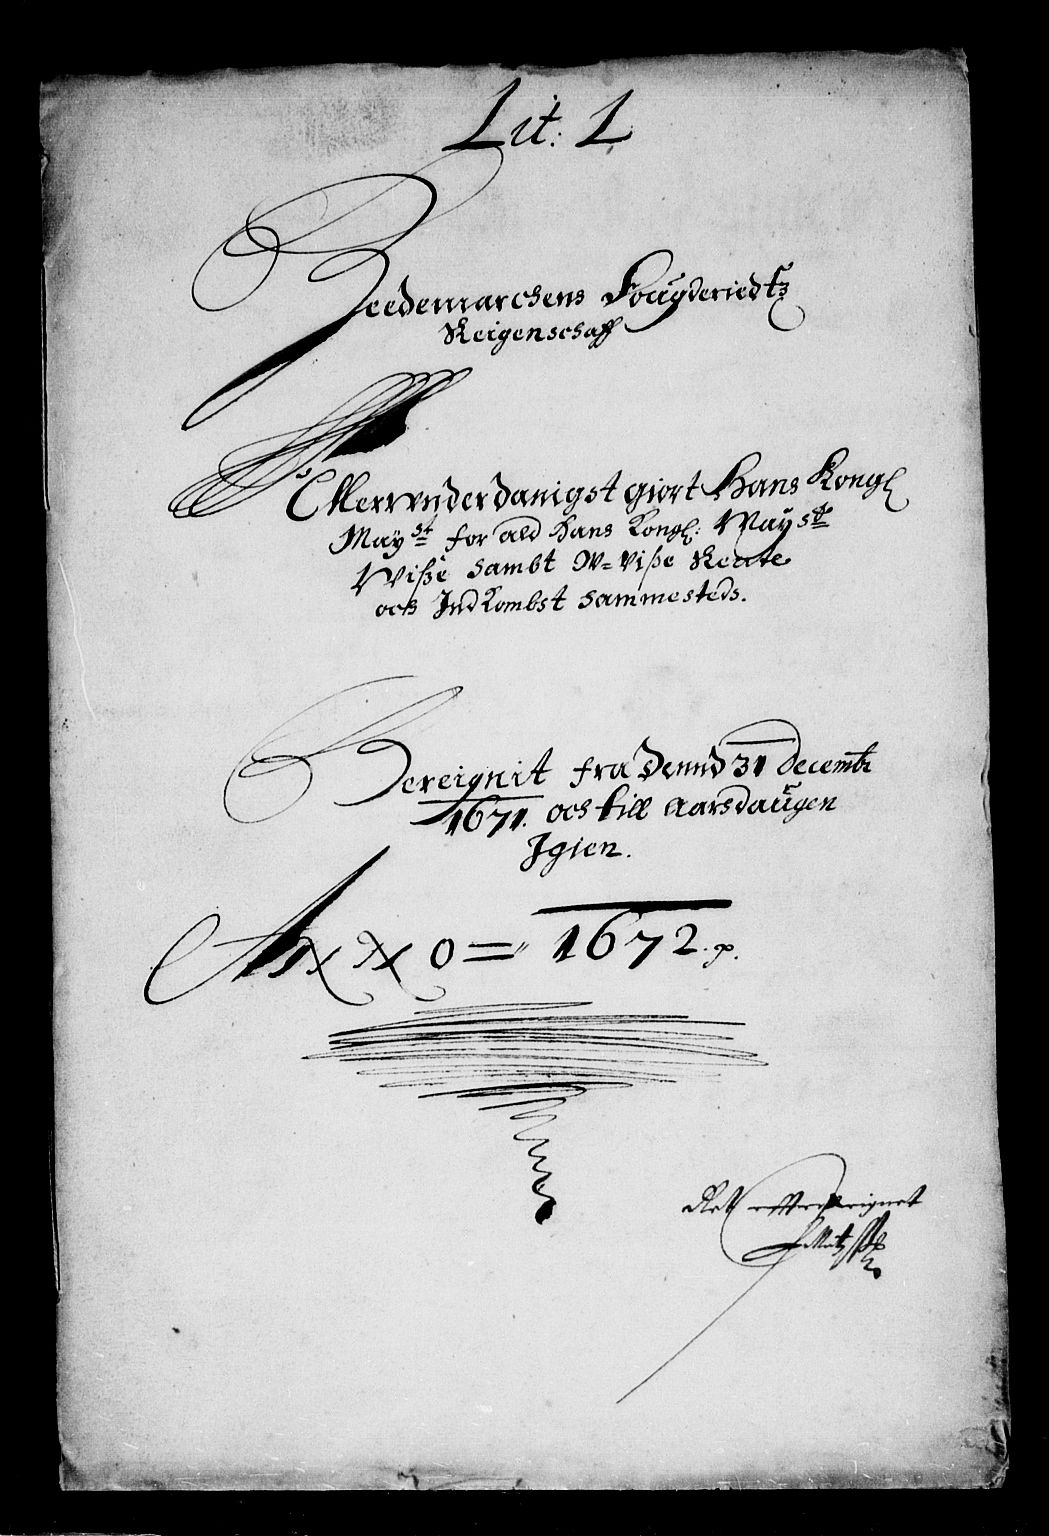 Lit: L
Heedemarchens Fougderiedtz
Reigenschaff
Allerunderdanigst giort Hans Kongl
May:st for ald Hans Kongl: May:sts
Viße sambt W=viße Rente
och Indkombst sammesteds.
Bereignit fra Dennd 31 Decembr
1671. och till Aarsdaugen
Igien.
Anno = 1672. p.
Ret